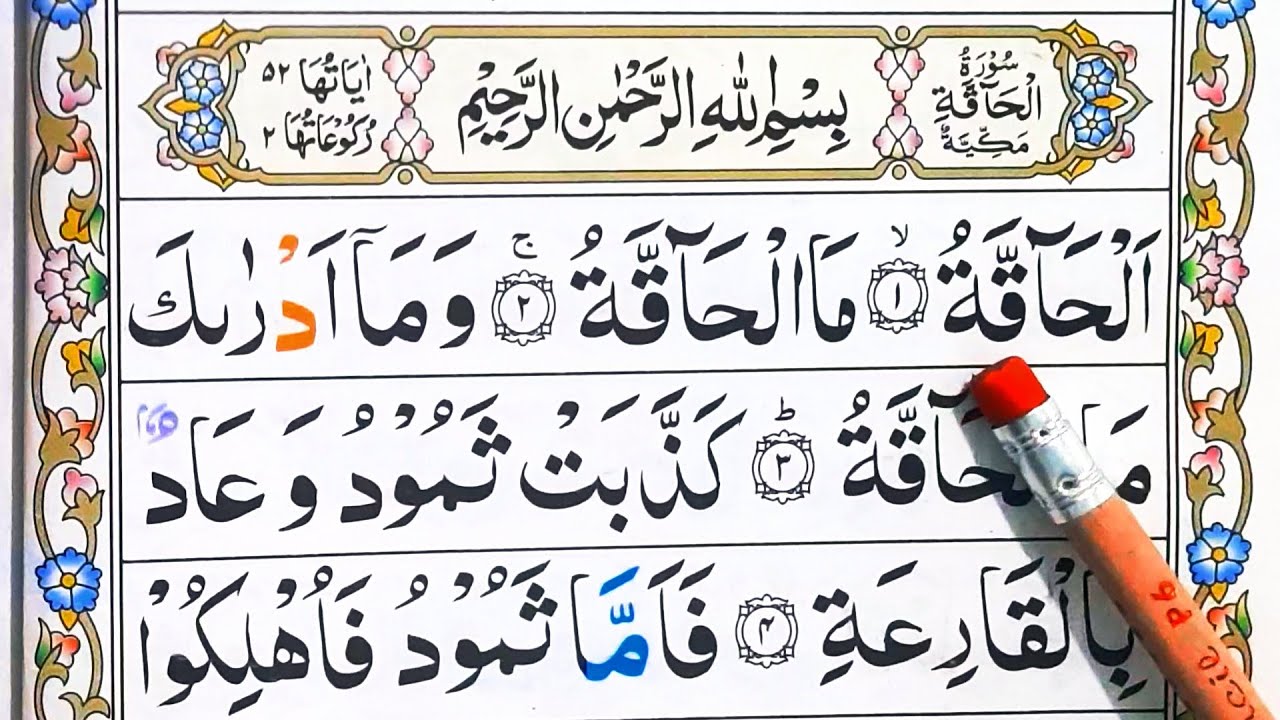 سُوْرَةُ
الْحَآقَّةِ
مَكِّيَّةٌ
بِسْمِ اللّٰهِ الرَّحْمٰنِ الرَّحِيْمِ
اٰيَاتُهَا ٥٢
رُكُوْعَاتُهَا ٢
اَلْحَآقَّةُ ۙ ١ مَا الْحَآقَّةُ ۚ ٢ وَمَآ اَدْرٰىكَ
مَا الْحَآقَّةُ ؕ ٣ كَذَّبَتْ ثَمُوْدُ وَعَادٌۢ
بِالْقَارِعَةِ ٤ فَاَمَّا ثَمُوْدُ فَاُهْلِكُوْا